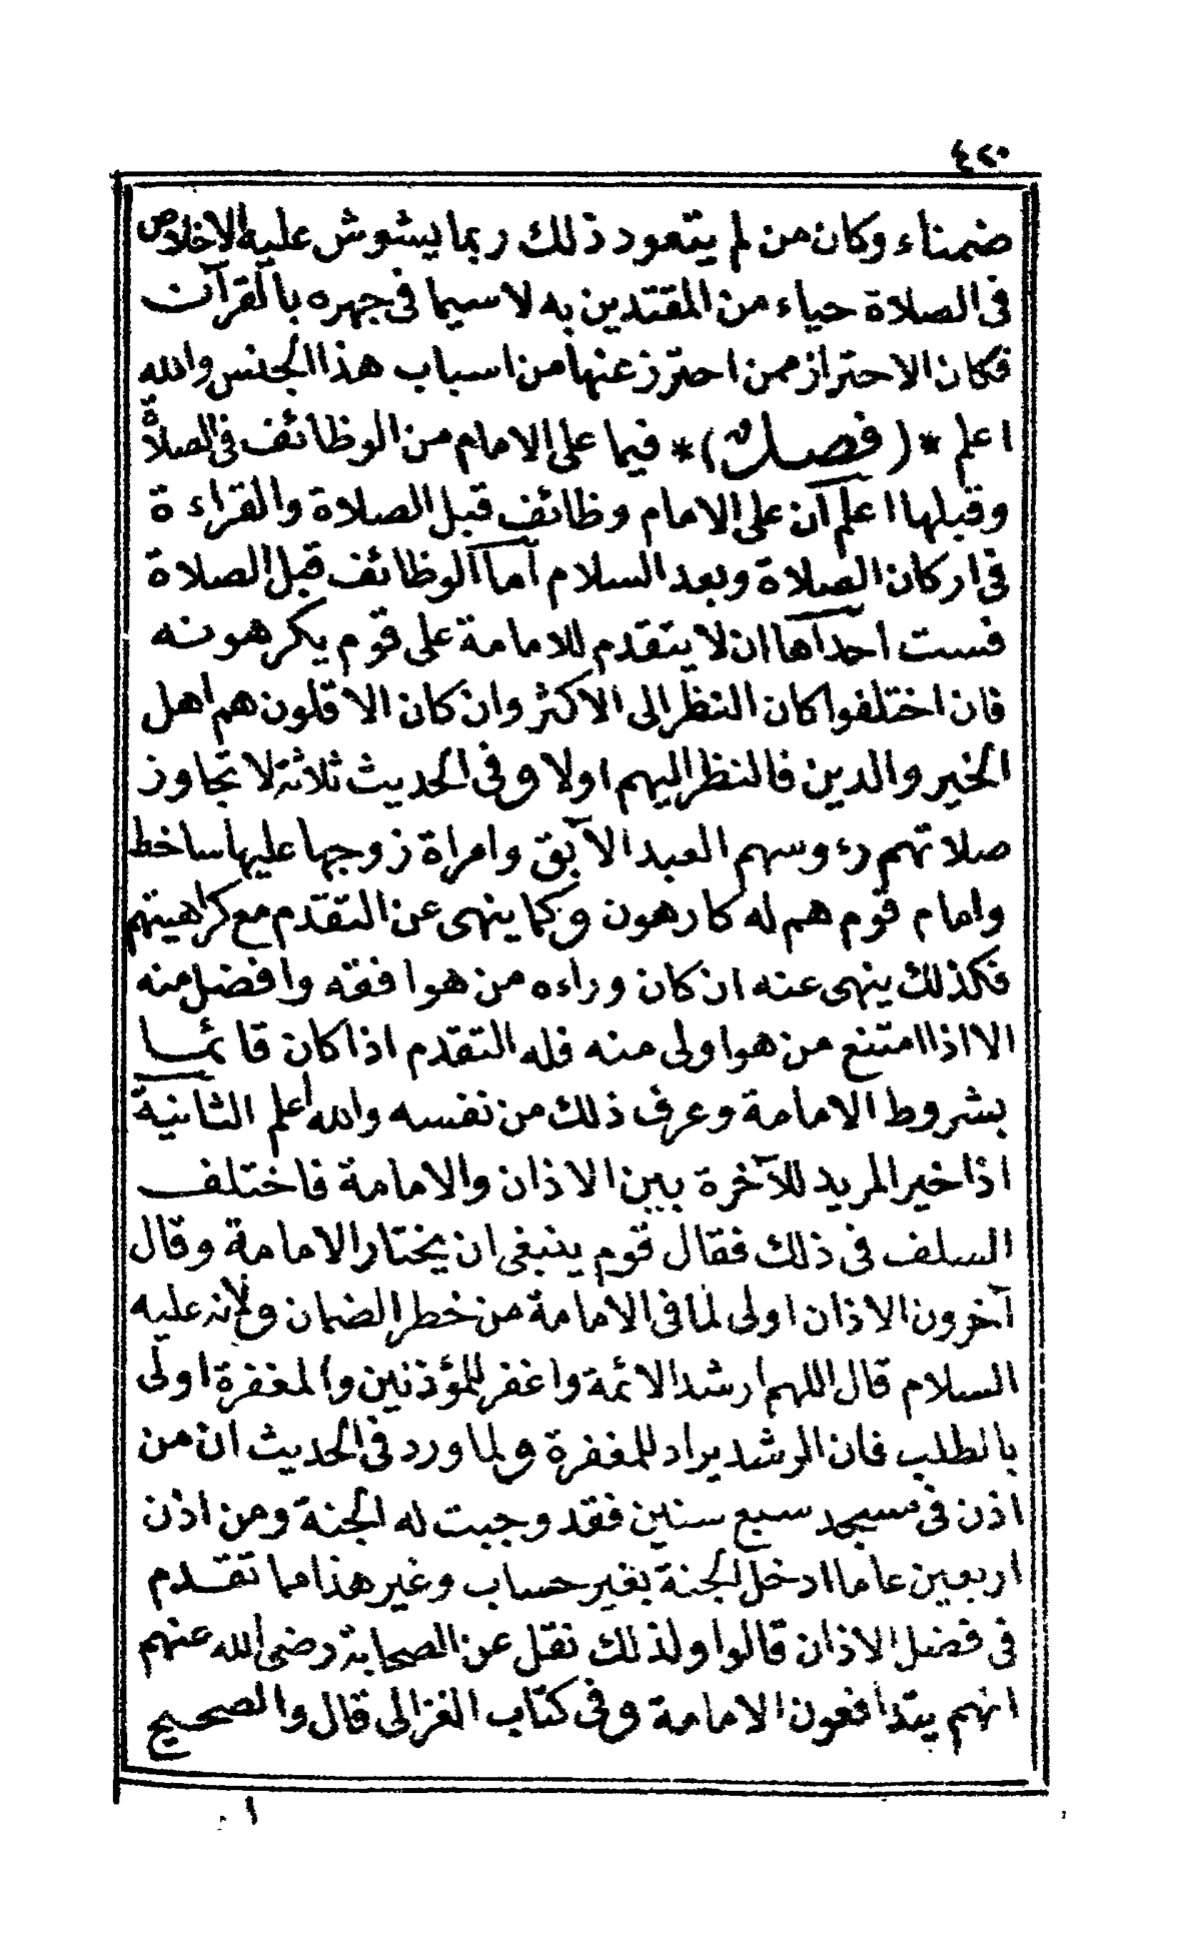 ٤٢٠
ضمناء وكان من لم يتعود ذلك ربما يشوش عليه الاخلاص
فى الصلاة حياء من المقتدين به لا سيما فى جهره بالقرآن
فكان الاحتراز ممن احترز عنها من اسباب هذا الجنس والله
اعلم *(فصل)* فيما على الامام من الوظائف فى الصلاة
وقبلها اعلم ان على الامام وظائف قبل الصلاة والقراءة
فى اركان الصلاة وبعد السلام أما الوظائف قبل الصلاة
فست احداها ان لا يتقدم للامامة على قوم يكرهونه
فان اختلفوا كان النظر الى الاكثر وان كان الاقلون هم اهل
الخير والدين فالنظر اليهم اولا وفى الحديث ثلاثة لا تجاوز
صلاتهم رءوسهم العبد الآبق وامراة زوجها عليها ساخط
وامام قوم هم له كارهون وكما ينهى عن التقدم مع كراهيتهم
فكذلك ينهى عنه ان كان وراءه من هو افقه وافضل منه
الا اذا امتنع من هو اولى منه فله التقدم اذا كان قائما
بشروط الامامة وعرف ذلك من نفسه والله اعلم الثانية
اذا خير المريد للآخرة بين الاذان والامامة فاختلف
السلف فى ذلك فقال قوم ينبغى ان يختار الامامة وقال
آخرون الاذان اولى لما فى الامامة من خطر الضمان ولانه عليه
السلام قال اللهم ارشد الائمة واغفر للمؤذنين والمغفرة اولى
بالطلب فان الرشد يراد للمغفرة ولما ورد فى الحديث ان من
اذن فى مسجد سبع سنين فقد وجبت له الجنة ومن اذن
اربعين عاما ادخل الجنة بغير حساب وغير هذا مما تقدم
فى فضل الاذان قالوا ولذلك نقل عن الصحابة رضى الله عنهم
انهم يتدافعون الامامة وفى كتاب الغزالى قال والصحيح
ا